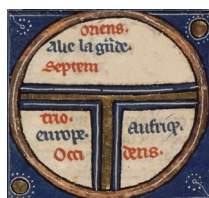 Oriens.
Asie la gñde.
Septem
trio.
europe.
Occi
Aufriq̃.
dens.